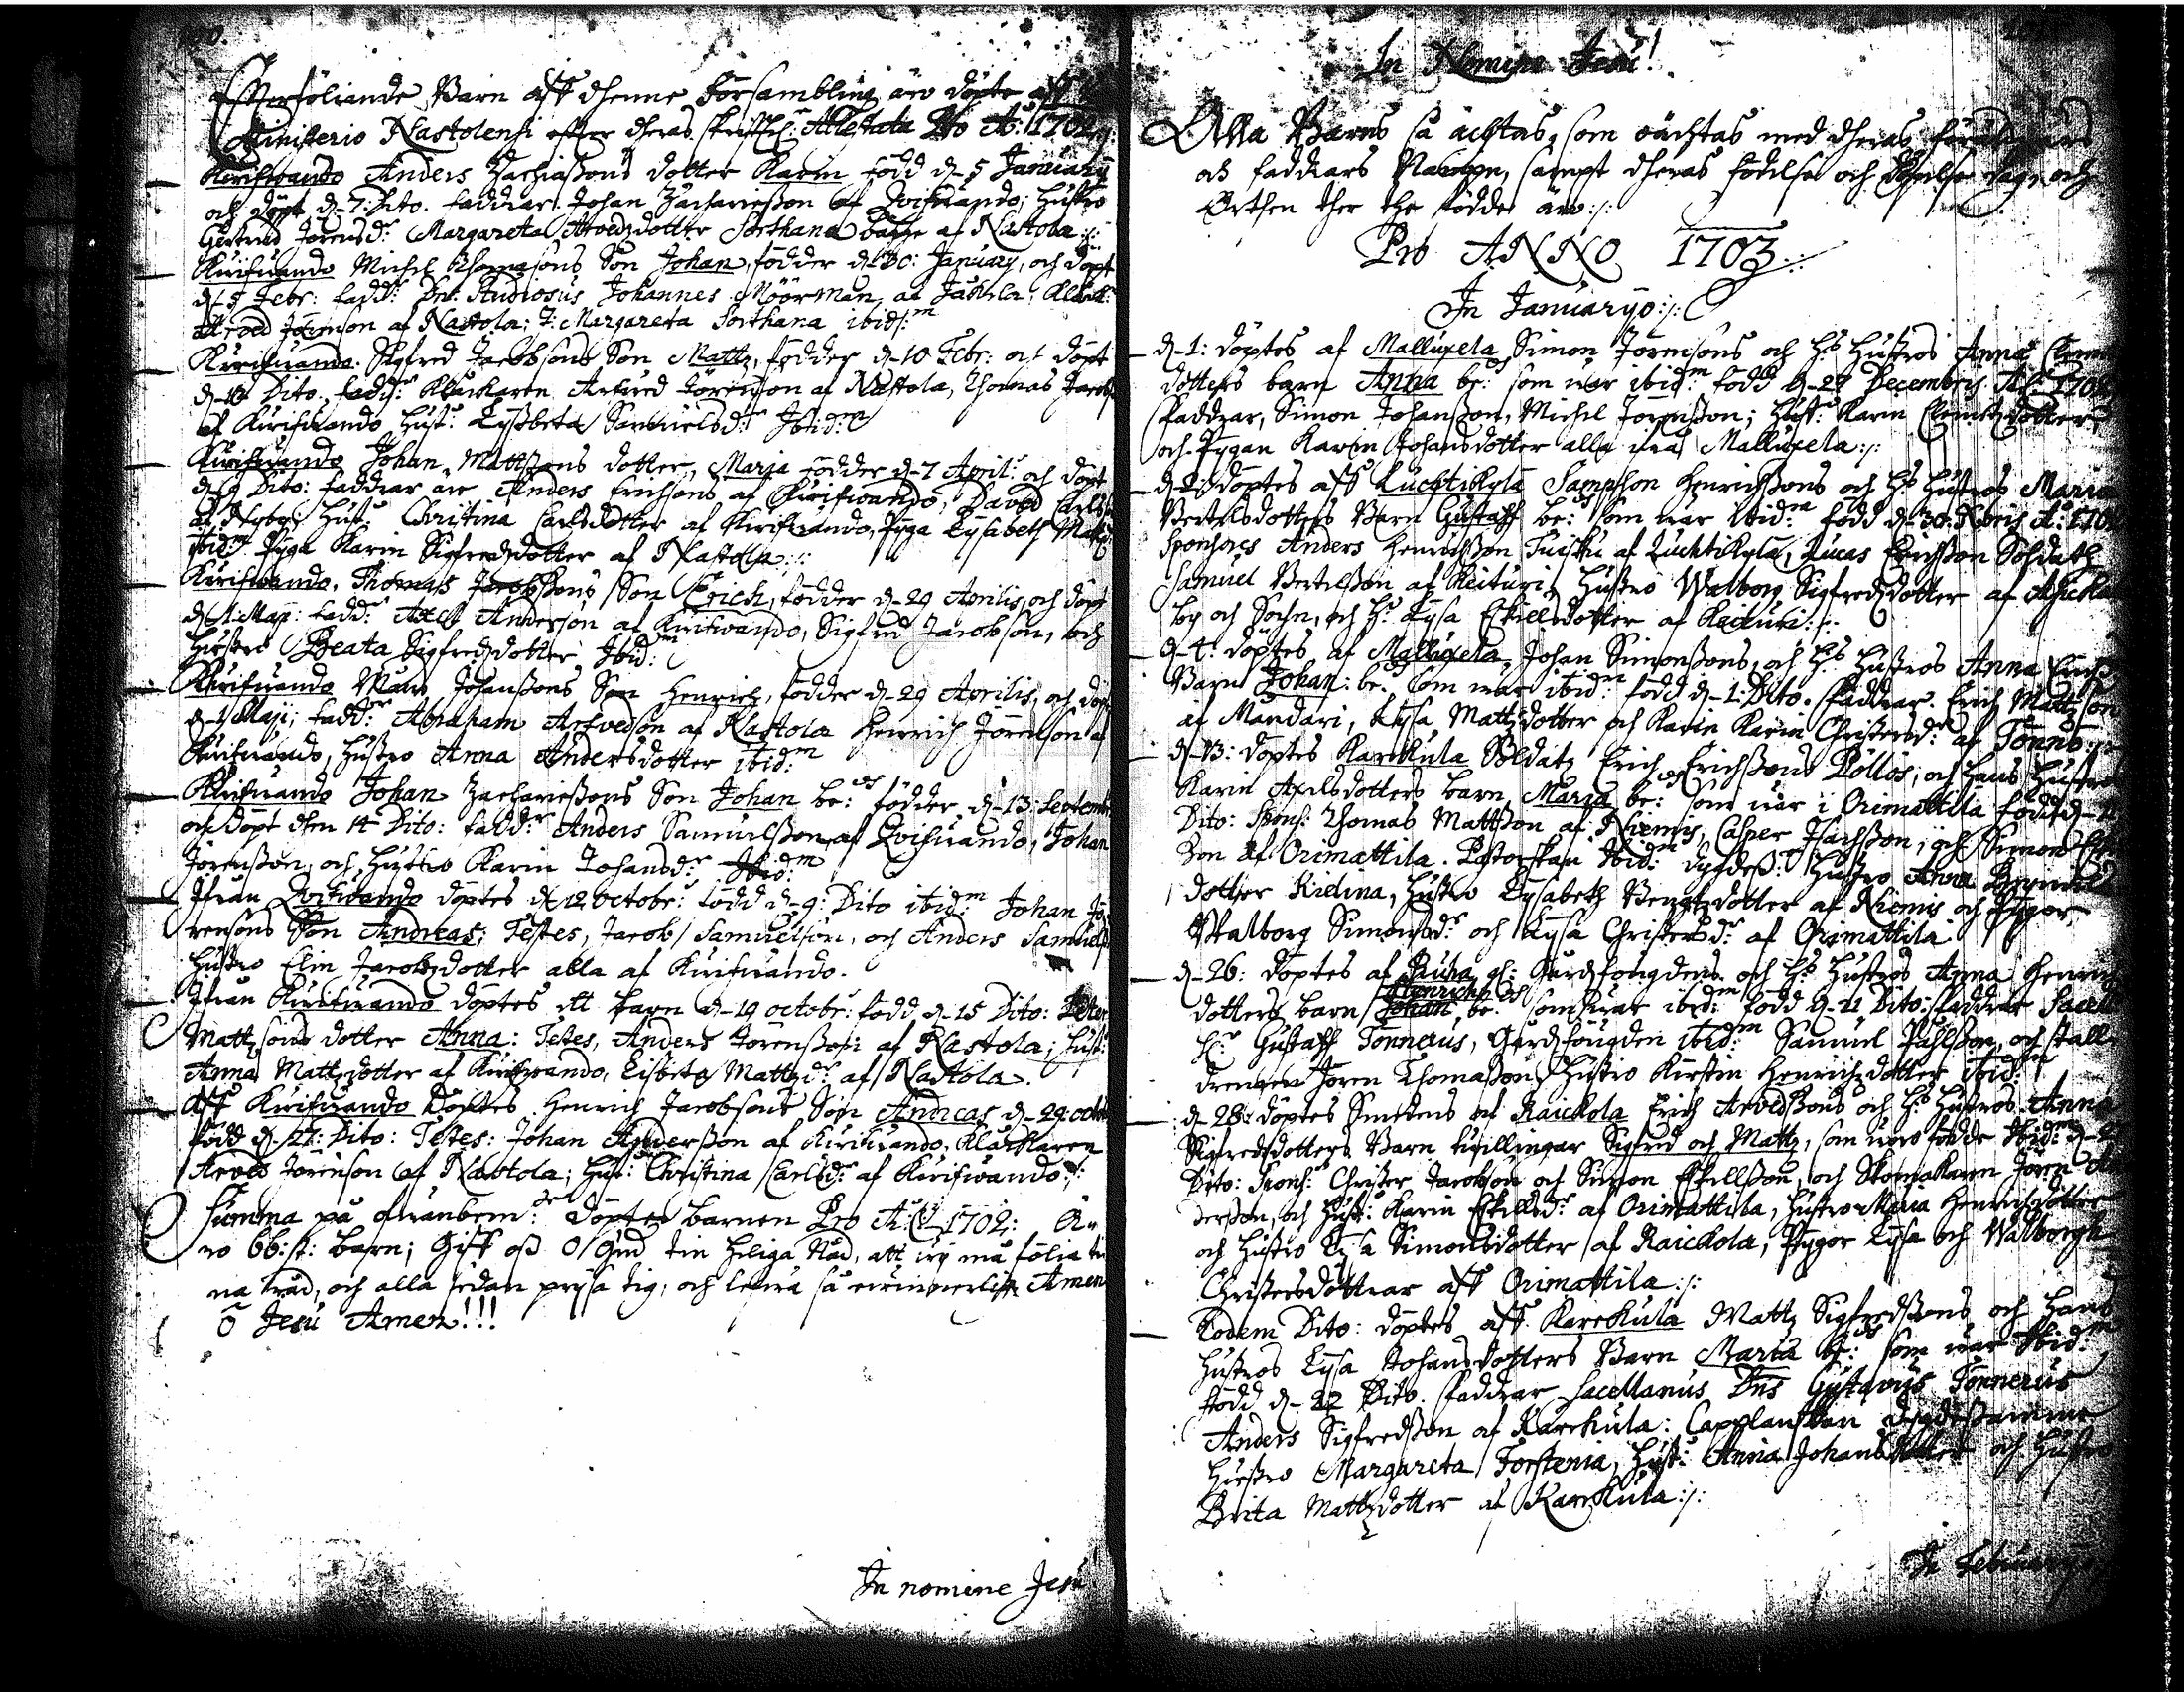 Effterföliande Barn aff dhenne Försambling äro döpte aff
Ministerio Nastolensi efter dheras skrifftl: Attestata Pro Ao: 1702
Kurifwando Anders Zachiaßons dotter Karin född d-5 January
och döpt d-7: Dito. faddrar. Johan Zachariesson af Qvifuando; Hustro
Gertrud Jörensdr: Margareta Arvedzdotter Sorthana bägge af Nastola:/:
Kurifuando Michel Thomasons Son Johan, födder d-30: January, och döpt
d- Febr: fadd: Dn: Studiosus Johannes Möörman af Jackila, Klåck:
Arved Jörenson af Nastola; J: Margareta Sorthana ibid:m
Kurifuando. Sigfred Jacobsons Son Mattz, födder d-10 Febr: och döpt
Dito. fadd: Klåckaren Arfved Jörenson af Nastola, Thomas Jacobs
af Kurifuando Hust: Lijsbeta Samuelsdr: Ibid:m
Kurifuando Johan Mattsons dotter, Maria födder d-7 April: och döpt
d-9 Dito: faddrar äre Anders Erichsons af Kurifwando, David Carls
af Nyby, Hust: Christina Carlsdotter af Kurifuando, Pyga Lysabeth Matts
ibid:m Pyga Karin Sigfredzdotter af Nastola:/:
Kurifwando. Thomas Jacobßons Son Erich, födder d-29 Aprilis, och döpt
d-1: Maji: fadd:r Axell Anderson af Kurifwando, Sigfred Jacobson, och
Hustro Beata Sigfredzdotter Ibid:m
Kurifuando Mans Johanßons Son Henrich, födder d-29 Aprilis, och döpt
d-1 Maji; fadd:r Abraham Arfvedson af Nastola Henrich Jörenson af
Kurifuando, Hustro Anna Andersdotter ibid:m
Kurifuando Johan Zachariesßons Son Johan be:d födder d-13: Septemb
och döpt den 14 Dito: fadd:r Anders Samuelsson af Qvifuando, Johan
Jörensson, och Hustro Karin Johansdr: Ibid:m
Ifrån Qvifwando döptes d 12 Octobr: född d-9: Dito ibid:m Johan Jö
rensons Son Andreas; Testes, Jacob Samuelson, och Anders Samuels
Hustro Elin Jacobzdotter alla af Kurifuando.
Ifrån Kurifuando döptes ett barn d-19 octobr: född d-15 Dito: Peter
Mattsons dotter Anna: Testes, Anders Jörensson af Nastola; Hust:
Anna Mattzdotter af Kurifwando, Lisbeta Mattzdr: af Nastola.
Aff Kurifuando döptes Henrich Jacobsons Son Andreas d-29: octob
född d-27: Dito: Testes: Johan Andersson af Kurifuando, Klåckaren
Arved Jörenson af Nastola; Hust: Christina Carlsdr: af Kurifwando:/:
Summa på ofwanbem:de döpte barnen Pro Ao: 1702: Ä-
ro 66: st: barn; Giff oß O Gud tin Heliga Nåd, att wij må fölia ti
na råd, och alla sedan prysa tig, och lefwa så ewinnerlig Amen
ô Jesu Amen!!!
In nomine Jesu
In Nomine Jesu!
Alla Barns så ächtas, som oächtas med dheras föräldrars
och faddrars Nampn, sampt dheras födelse och döpelse dagz och
Orthen ther the födde äro:/:
Pro ANNO 1703:/:
In Januaryo:/:
d-1: döptes af Mallusela Simon Jörensons och hs Hustros Anna Clem
dotters barn Anna be: som war ibid:m född d-29 Decembris Ao 1702
Faddrar, Simon Johanßon, Michel Jörenßon; Hust: Karin Clemitzdotter
och Pygan Karin Johansdotter alla ifrå Mallusela:/:
döptes aff Luchtikylä Sampson Henrichßons och Hs Hustros Maria
Bertelsdotters Barn Gustaff be: som war ibid:m född d-30: Xbris Ao 1702
Sponsores Anders Henrichßon Tuisku af Luchtikylä, Lucas Erichßon Soldath
Samuel Bertelßon af Keituri, Hustro Walborg Sigfredzdotter af
by och Sochn, och H: Lysa Eskillsdotter af Keituri:/:
d-4: döptes af Mallusela, Johan Simonßons, och Hs Hustros Anna Erichs
Barn Johan: be: som war ibid:m född d-1: Dito. Faddrar. Erich Mattzson
af Mandari, Lysa Mattzdotter och Karin Karin Christersdr: af Tönnö:/:
d-13: döptes Karckula Soldatz Erich Erichßons Pöllös; och Hans Hustros
Karin Axelsdotters barn Maria be: som war i Orimattila född d-
Dito: Spons: Thomas Mattßon af Niemis, Casper Jachßon; och Simon
Son af Orimattila. Pastorskan Ibid:m dygdes: Hustro Anna
dotter Kidina, Hustro Lysabeth Bengtzdotter af Niemis och Pygor
Walborg Simonsdr: och Lysa Christersdr: af Orimattila
d-26: döptes af Ruha gl: Gårdzfougdens och Hs Hustros Anna Henrichs
Henrich
dotters barn Johan be: som war ibid:m född d-21 Dito: Faddrar Sacell
H: Gustaff Tönnerus, Gårdzfougden ibid:m Samuel Påhlßon, och stall-
drengen Jören Thomaßon, Hustro Kirstin Henrichzdotter ibid:m
d-28: döptes Smedens af Raickola Erich Arvedßons och Hs Hustros Anna
Sigfredzdotters Barn twillingar Sigfred och Mattz, som woro födde ibid:m d-
Dito: Spons: Christer Jacobßon och Simon Eskillßon, och Skomakaren Jören An
derßon, och Hust: Karin Eskillsdr: af Orimattila, Hustro Maria Henrichzdotter
och Hustro Lysa Simonsdotter af Raickola, Pygor Lysa och Walborgh
Christersdöttrar aff Orimattila:/:
Eodem Dito: döptes aff Karckula Mattz Sigfredßons och Hans
Hustros Lysa Johansdotters Barn Maria be: som war Ibid:m
född d-22 Dito. Faddrar Sacellanus Dns Gustavus Tönnerus
Anders Sigfredßon af Karckula: Capplanskan dygdesamme
Hustro Margareta Forstenia, Hust: Anna Johansdotter och Hustro
Brita Mattzdotter af Karckula:/:
In Februaryo